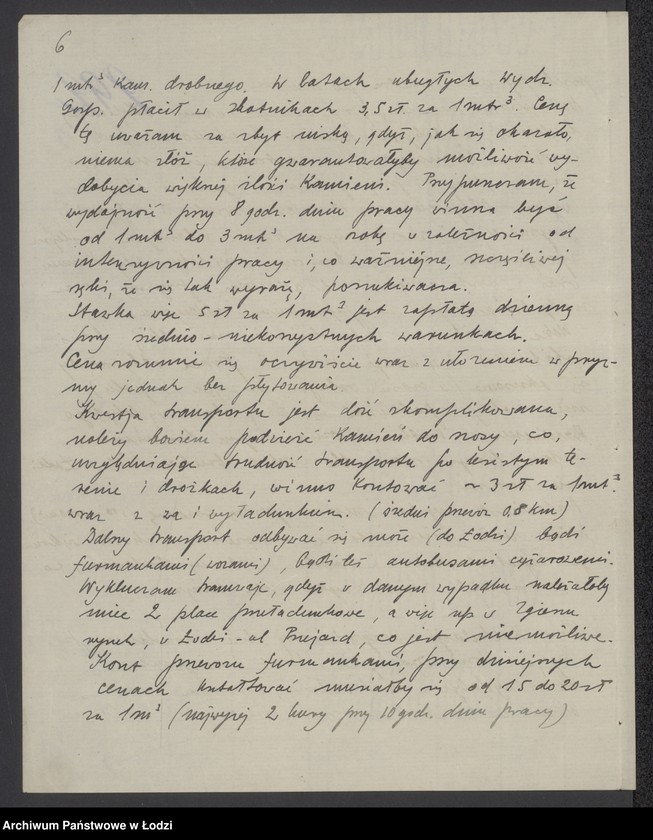 6
1 mtr³ kam. drobnego. W latach ubiegłych wydz.
Gosp. płacił w złotnikach 3,5 zł za 1 mtr³. Cenę
tę uważam za zbyt niską, gdyż, jak się okazało,
niema złóż, które gwarantowałyby możliwość wy-
dobycia większej ilości kamieni. Przypuszczam, że
wydajność przy 8 godz. dniu pracy winna być
od 1 mtr³ do 3 mtr³ na osobę w zależności od
intenzywności pracy i, co ważniejsze, szczęśliwej
ręki, że się tak wyrażę, poszukiwacza.
Stawka więc 5 zł za 1 mtr³ jest zapłatą dzienną
przy średnio-niekorzystnych warunkach.
Cena rozumie się oczywiście wraz z ułożeniem w pryz-
my jednak bez płytowania.
Kwestja transportu jest dość skomplikowana,
należy bowiem podzieść kamień do szosy, co,
uwzględniając trudność transportu po lesistym te-
renie i dróżkach, winno kosztować ~ 3 zł za 1 mtr³.
wraz z za i wyładunkiem. (średni przewóz 0,8 km)
Dalszy transport odbywać się może (do Łodzi) bądź
furmankami (wozami), bądź też autobusami ciężarowemi.
Wykluczam tramwaje, gdyż w danym wypadku należałoby
mieć 2 place przeładunkowe, a więc np w Zgierzu
rynek, w Łodzi - ul. Przejazd, co jest niemożliwe.
Koszt przewozu furmankami, przy dzisiejszych
cenach kształtować musiałby się od 15 do 20 zł
za 1 m³ (najwyżej 2 kursy przy 10 godz. dniu pracy)
Archiwum Państwowe w Łodzi